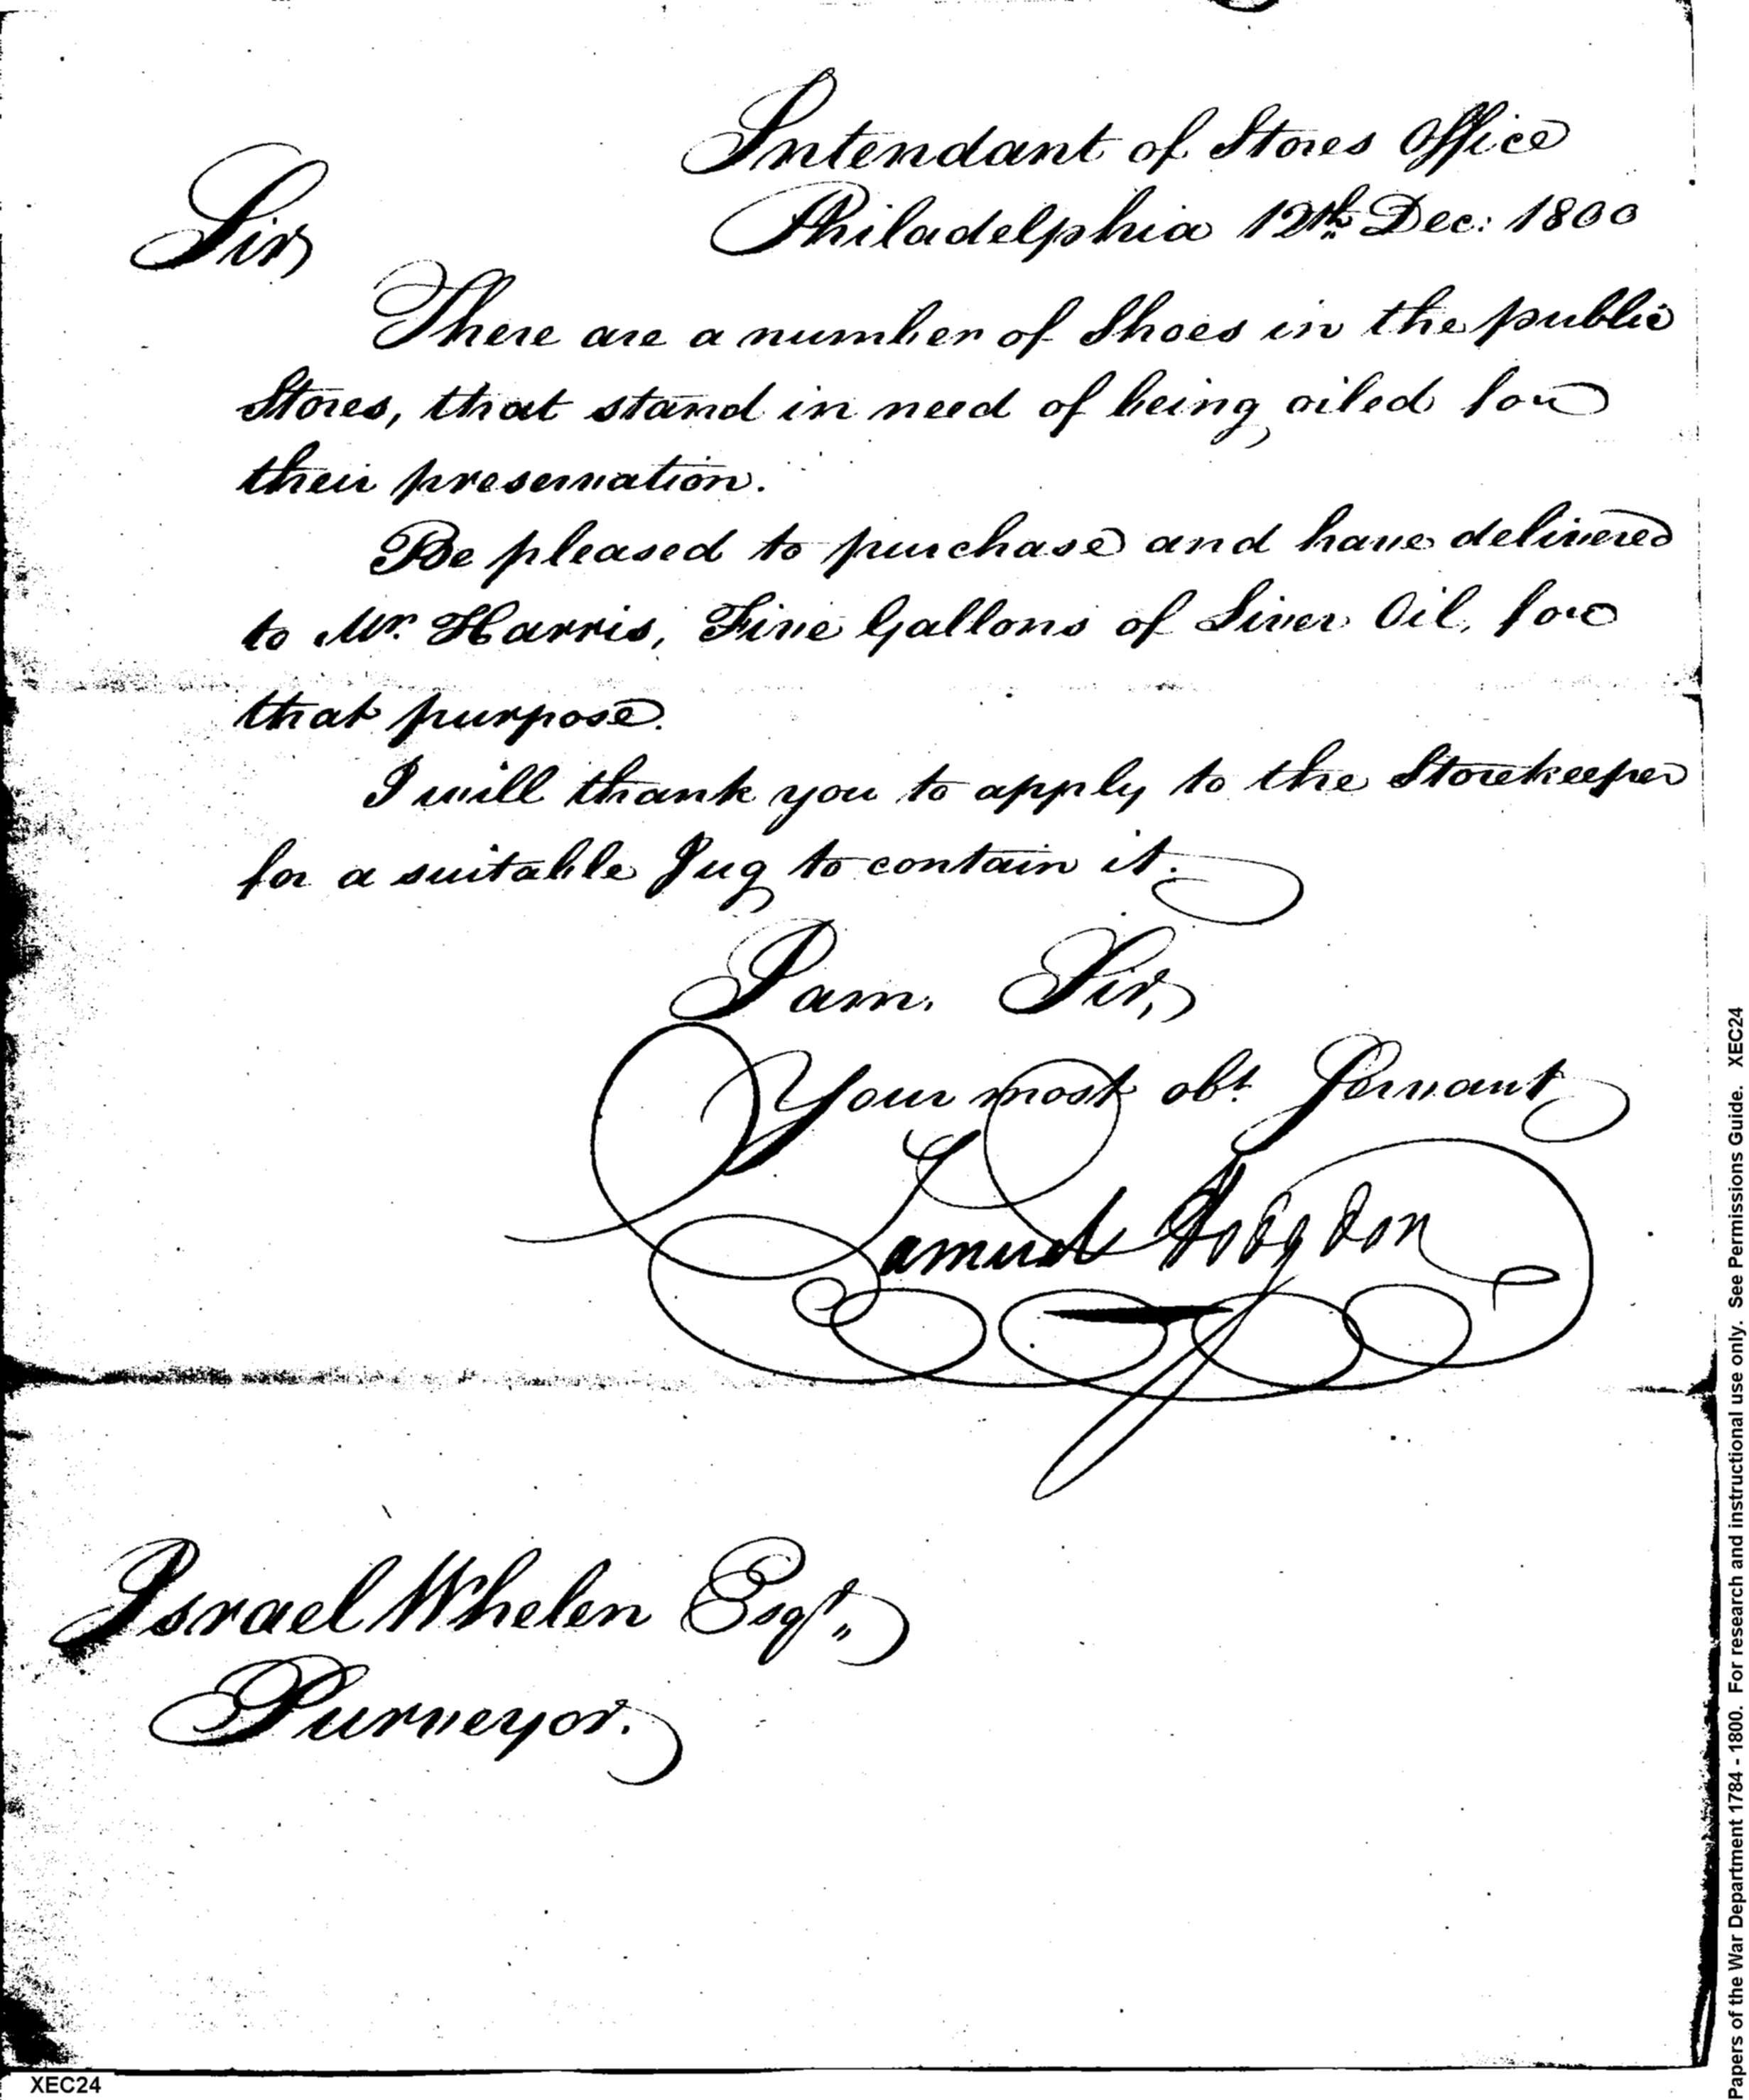 Intendant of Stores Office
Philadelphia 12th. Dec: 1800
Sir
There are a number of Shoes in the public
Stores, that stand in need of being oiled for
their preservation.
Be pleased to purchase and have delivered
to Mr. Harris, Five Gallons of Liver Oil, for
that purpose.
I will thank you to apply to the Storekeeper
for a suitable Jug to contain it.
I am. Sir,
Your most obt. Servant
Samuel Hodgdon
Israel Whelen Esqr.,
Purveyor.
XEC24
Papers of the War Department 1784 - 1800. For research and instructional use only. See Permissions Guide. XEC24